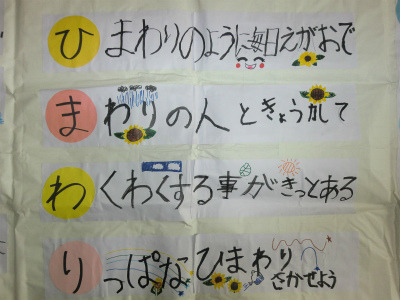 ひまわりのように毎日えがおで
まわりの人ときょうかして
わくわくする事がきっとある
りっぱなひまわりさかせよう